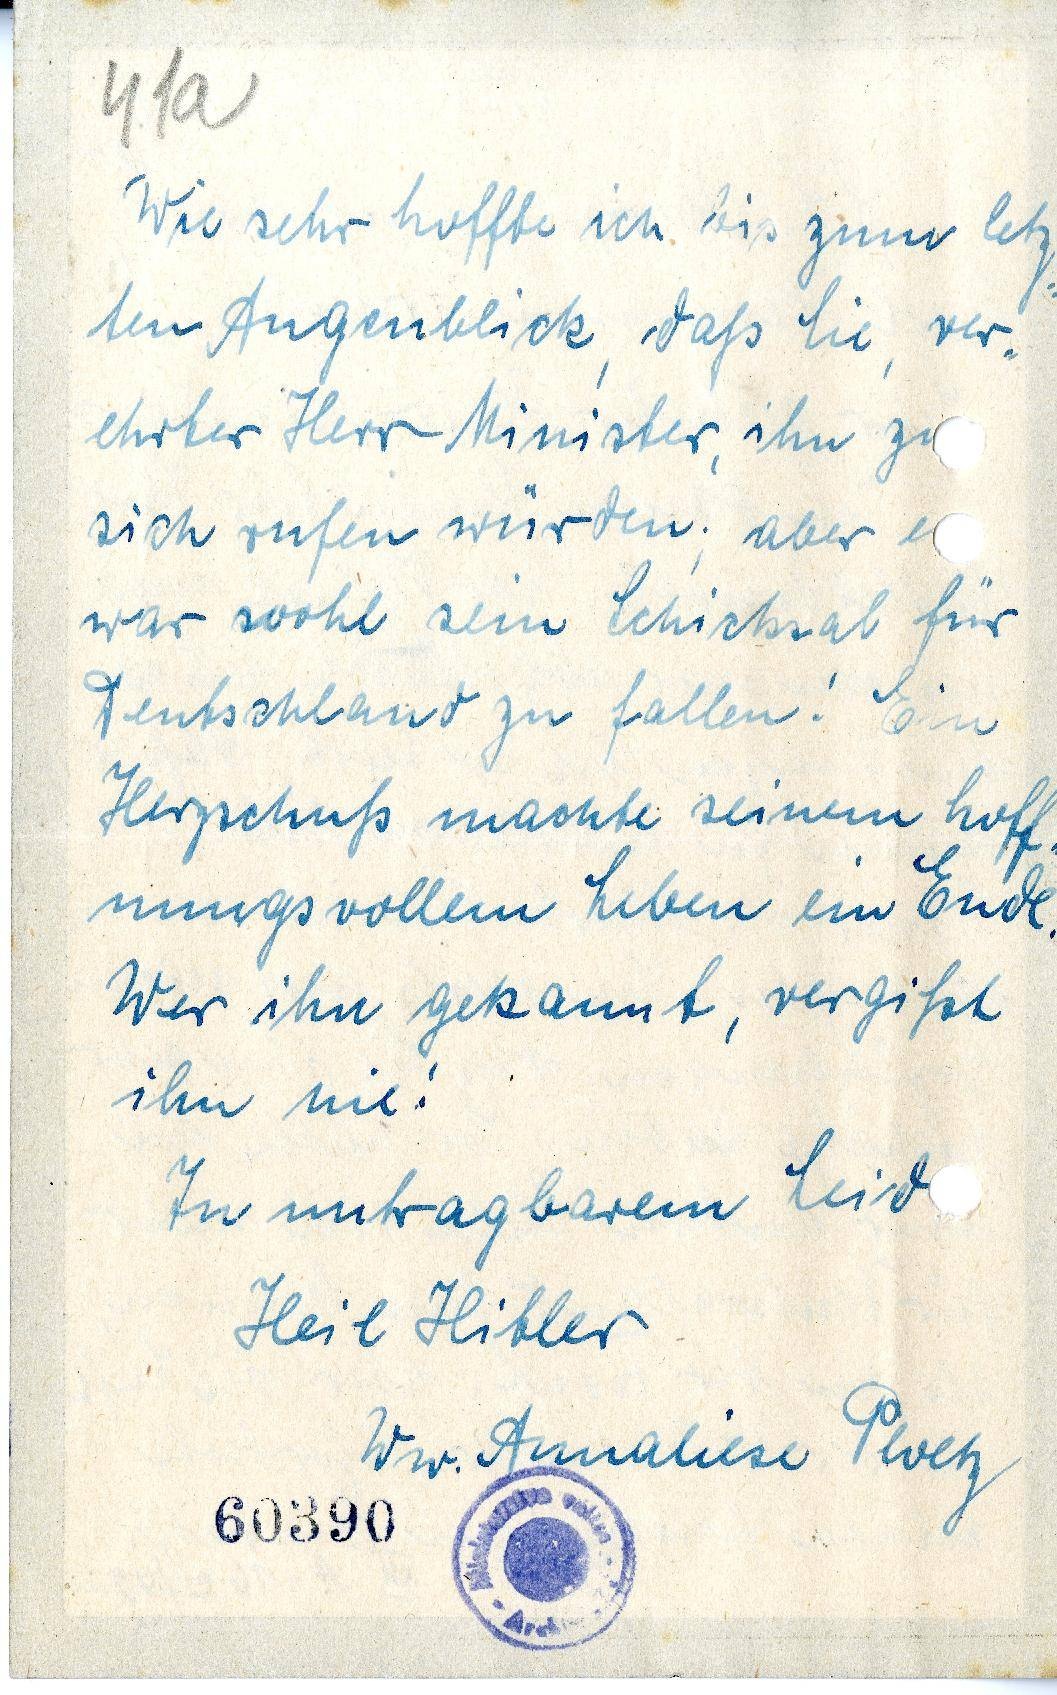 41a
Wie sehr hoffte ich bis zum letz-
ten Augenblick, daß Sie, ver-
ehrter Herr Minister, ihn zu
sich rufen würden; aber es
war wohl sein Schicksal für
Deutschland zu fallen! Ein
Herzschuß machte seinem hoff-
nungsvollem Leben ein Ende.
Wer ihn gekannt, vergißt
ihn nie!
In untragbarem Leid
Heil Hitler
Ww. Annaliese Ploetz
60390
Archiv